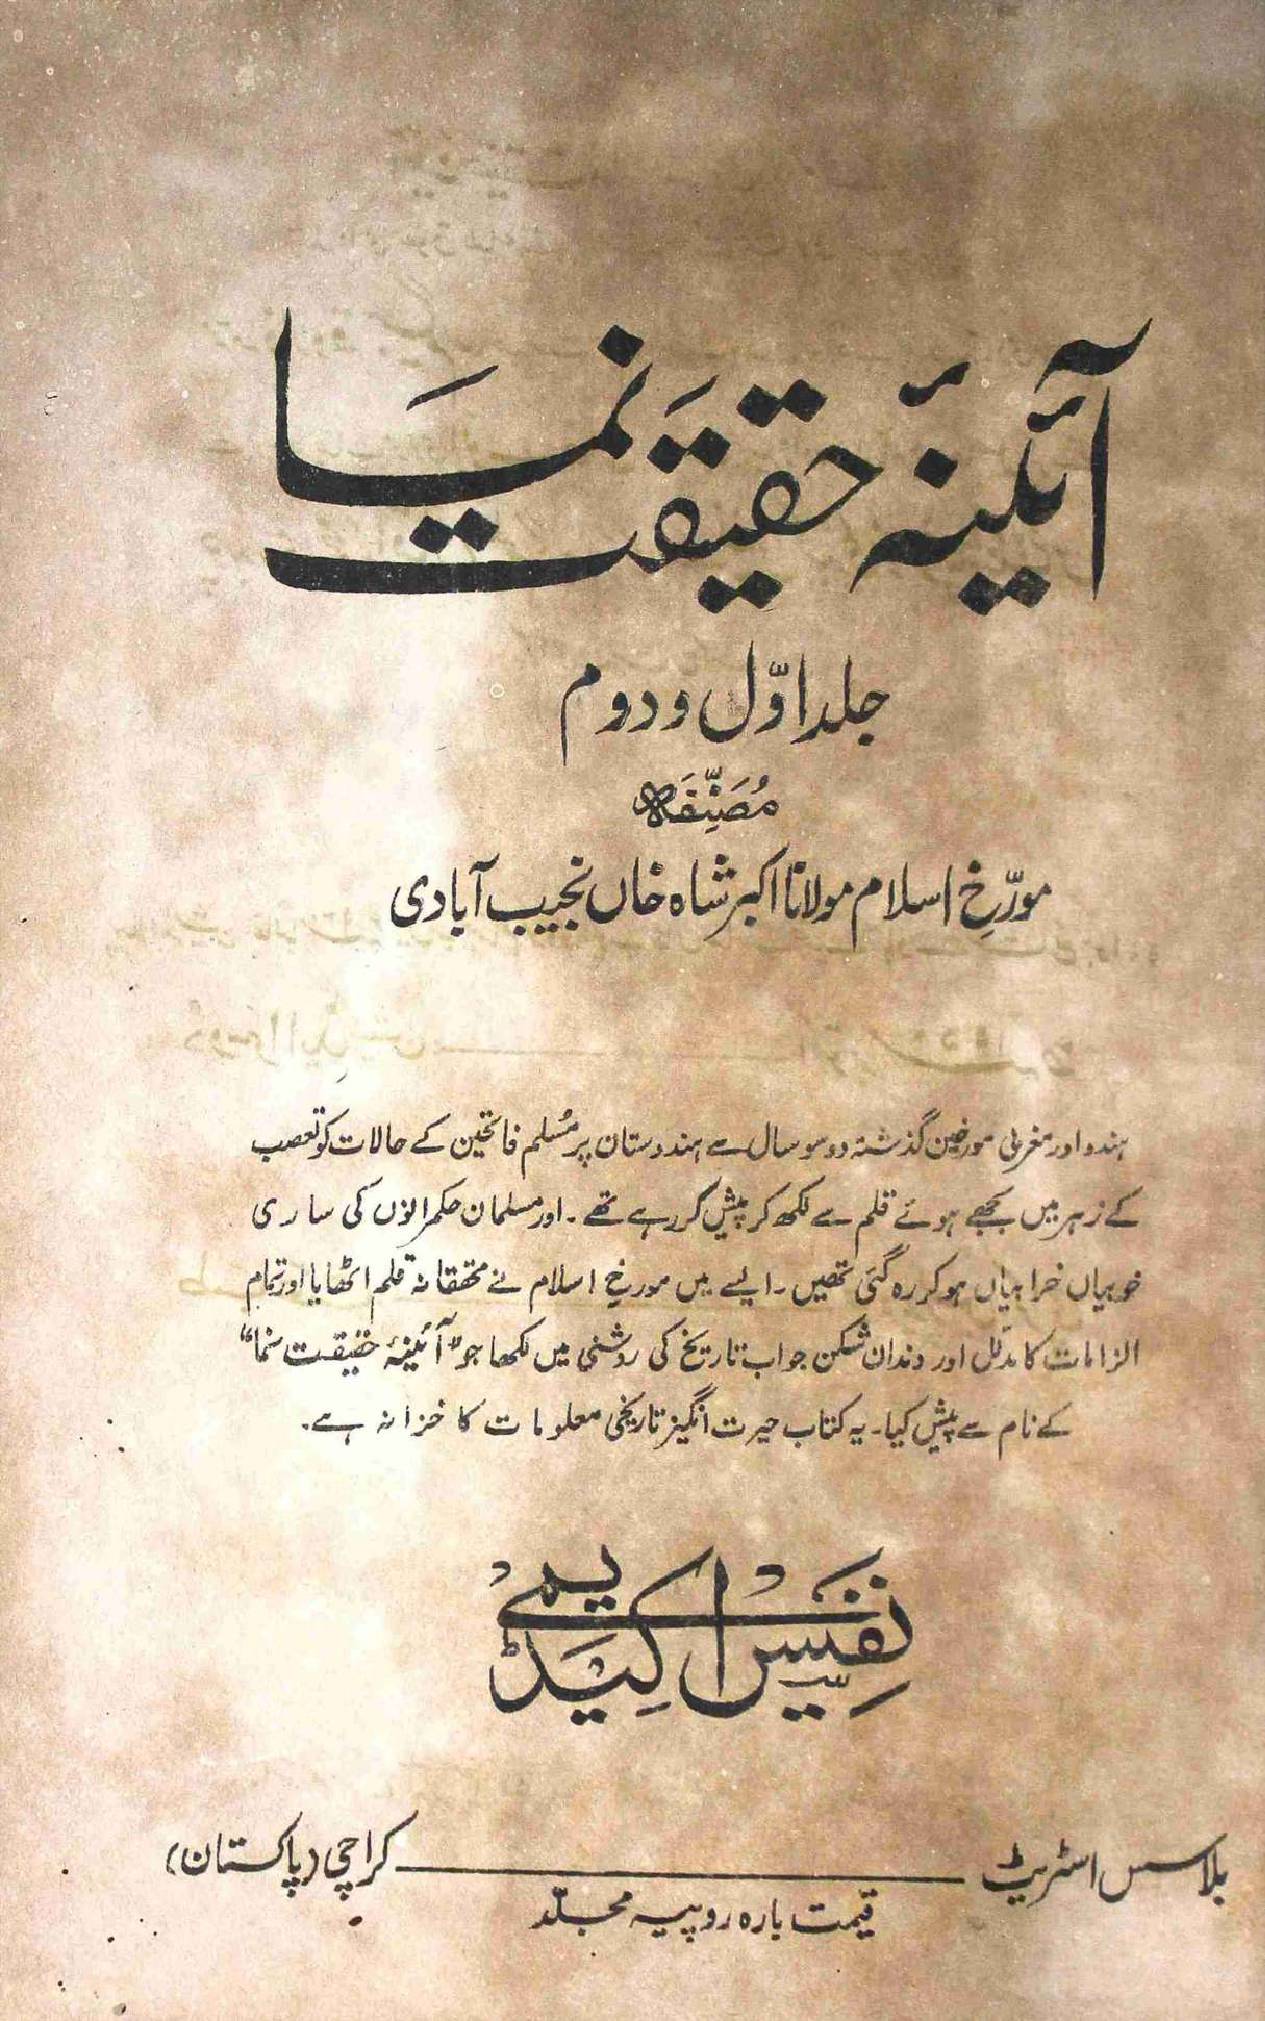 آئینۂ حقیقت نما
جلد اوّل و دوم
مُصَنِّفَہ
مورّخِ اسلام مولانا اکبر شاہ خاں نجیب آبادی
ہندو اور مغربی مورخین گذشتہ دو سو سال سے ہندوستان پر مُسلم فاتحین کے حالات کو تعصب
کے زہر میں بجھے ہوئے قلم سے لکھ کر پیش کر رہے تھے ۔ اور مسلمان حکمرانوں کی ساری
خوبیاں خرابیاں ہو کر رہ گئی تھیں ۔ ایسے میں مورخِ اسلام نے محققانہ قلم اٹھایا اور تمام
الزامات کا مدلّل اور دندان شکن جواب تاریخ کی روشنی میں لکھا جو "آئینۂ حقیقت نما"
کے نام سے پیش کیا ۔ یہ کتاب حیرت انگیز تاریخی معلومات کا خزانہ ہے ۔
نفیس اکیڈیمی
بلاسس اسٹریٹ ـــــــ کراچی (پاکستان)
قیمت بارہ روپیہ مجلّد